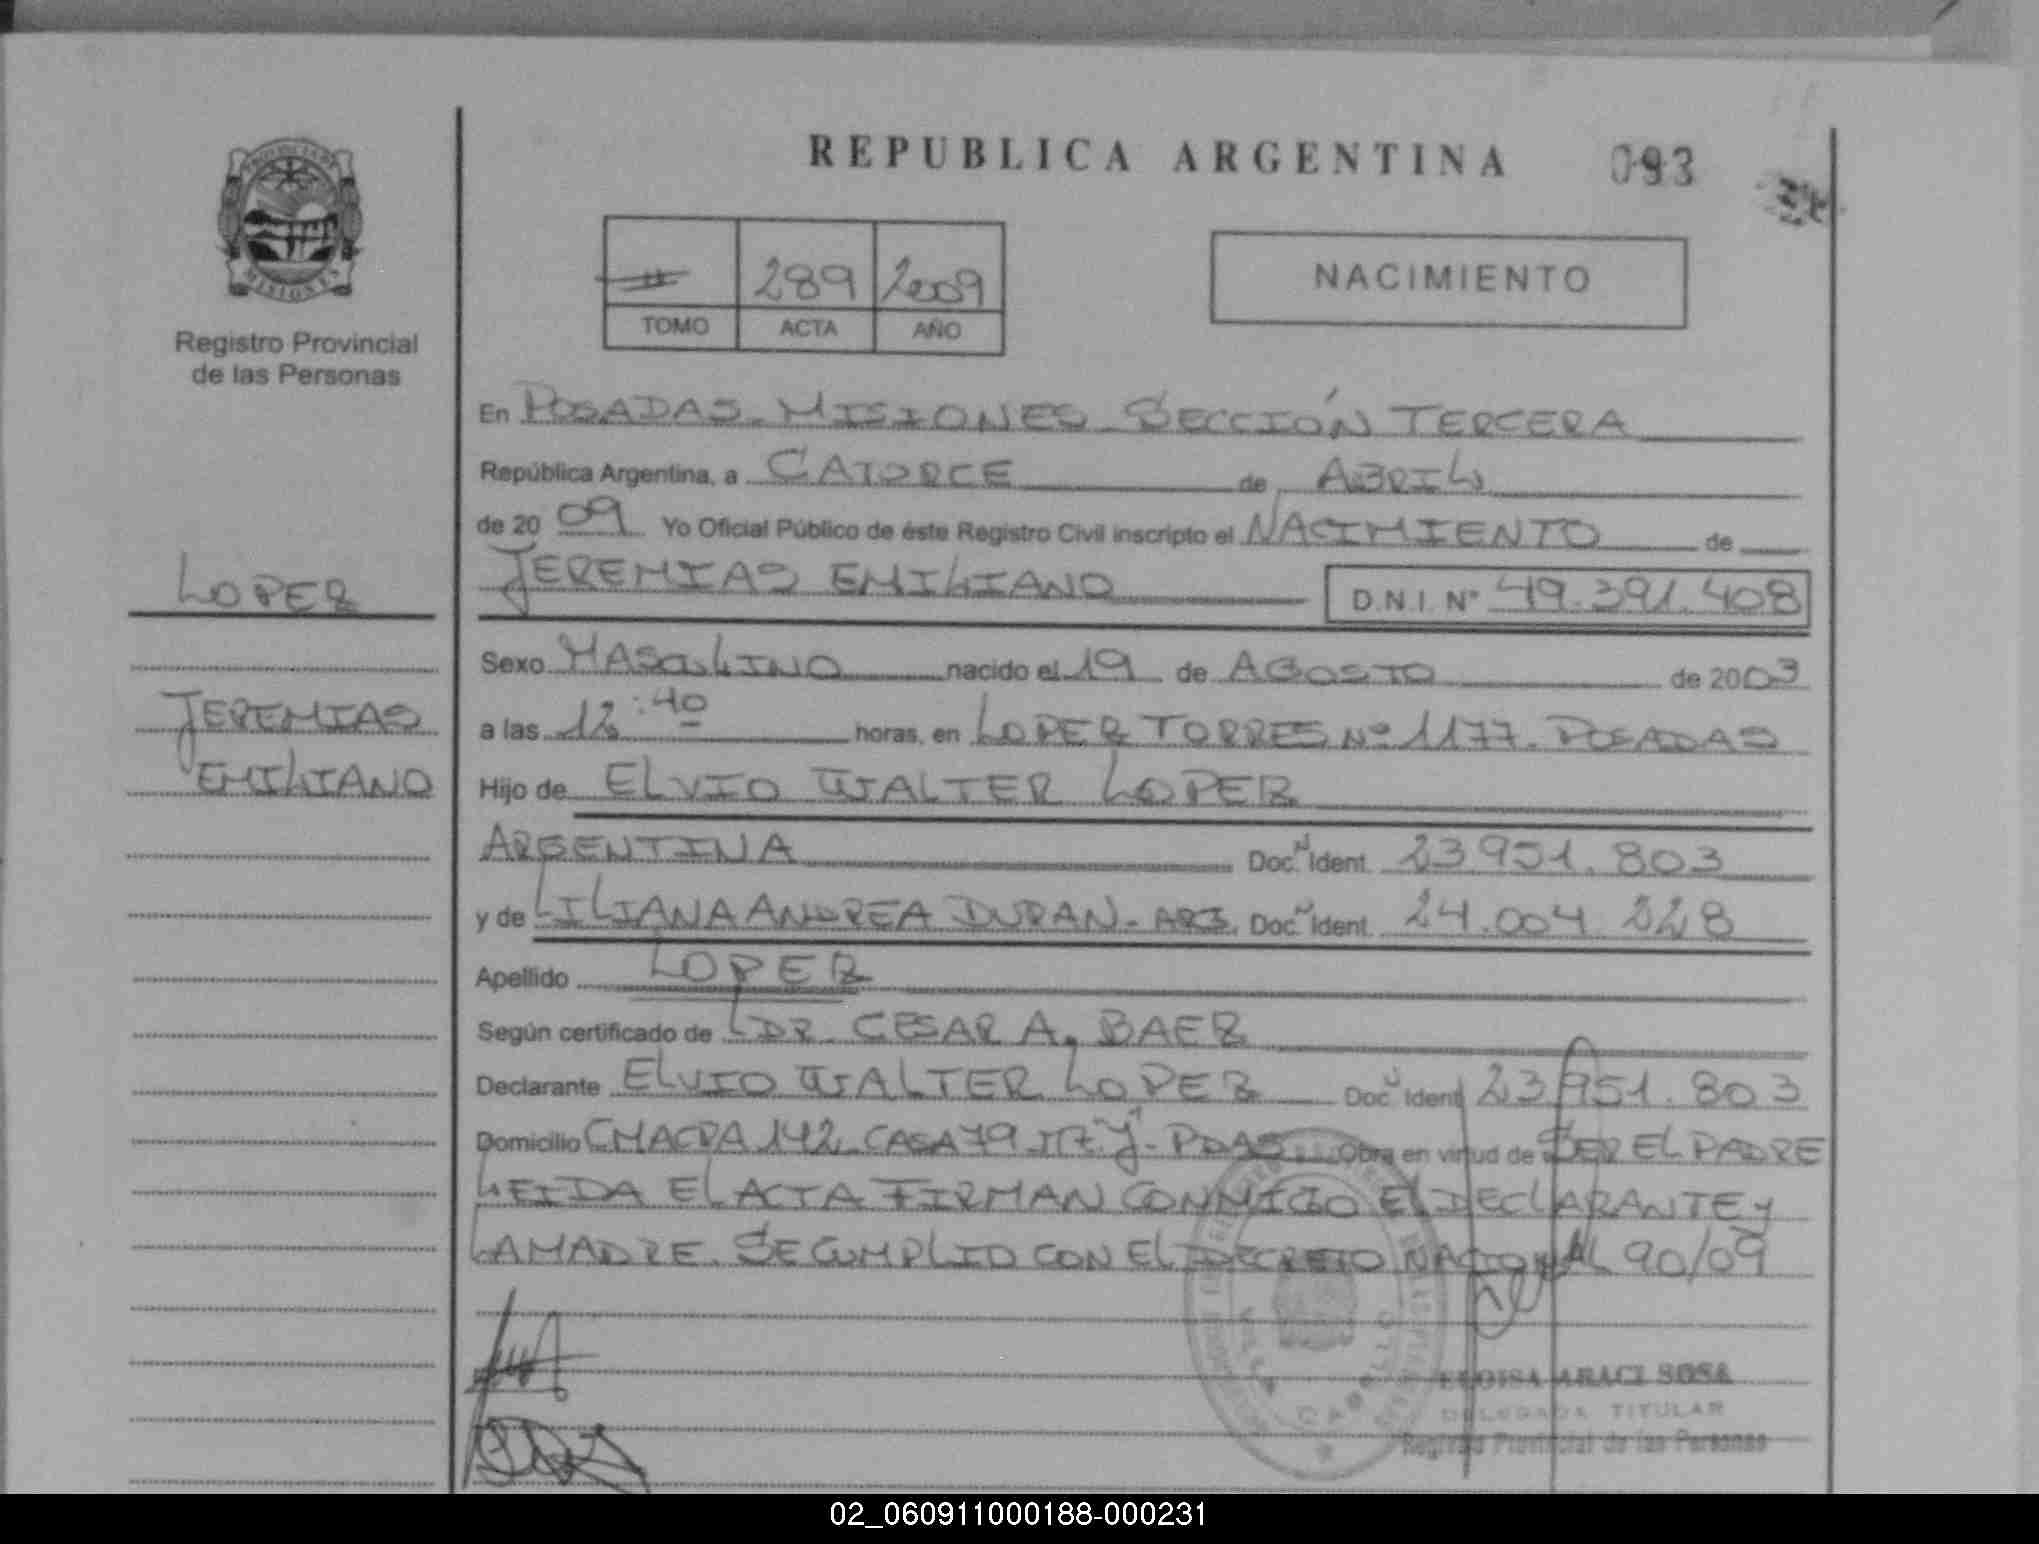 REPUBLICA ARGENTINA 093
PROVINCIA DE
MISIONES
Registro Provincial
de las Personas
289 2009
TOMO ACTA AÑO
NACIMIENTO
En POSADAS-MISIONES-SECCIÓN TERCERA
República Argentina, a CATORCE de ABRIL
de 2009 Yo Oficial Público de éste Registro Civil inscripto el NACIMIENTO de
JEREMIAS EMILIANO D.N.I. Nº 49.391.408
LOPEZ
JEREMIAS
EMILIANO
Sexo MASCULINO nacido el 19 de AGOSTO de 2003
a las 12:40 horas, en LOPEZ TORRES Nº 1177. POSADAS
Hijo de ELVIO WALTER LOPEZ
ARGENTINA Doc. Ident. 23951.803
y de LILIANA ANDREA DURAN- ARG. Doc. Ident. 24.004.228
Apellido LOPEZ
Según certificado de DR. CESAR A. BAEZ
Declarante ELVIO WALTER LOPEZ Doc. Ident. 23951.803
Domicilio CHACRA 142 CASA 79 - PDAS Obra en virtud de SER EL PADRE
LEIDA EL ACTA FIRMAN CONMIGO EL DECLARANTE Y
LA MADRE. SE CUMPLIO CON EL DECRETO NACIONAL 90/09
VILLA CABELLO
ELOISA ARACI SOSA
DELEGADA TITULAR
Registro Provincial de las Personas
02_060911000188-000231